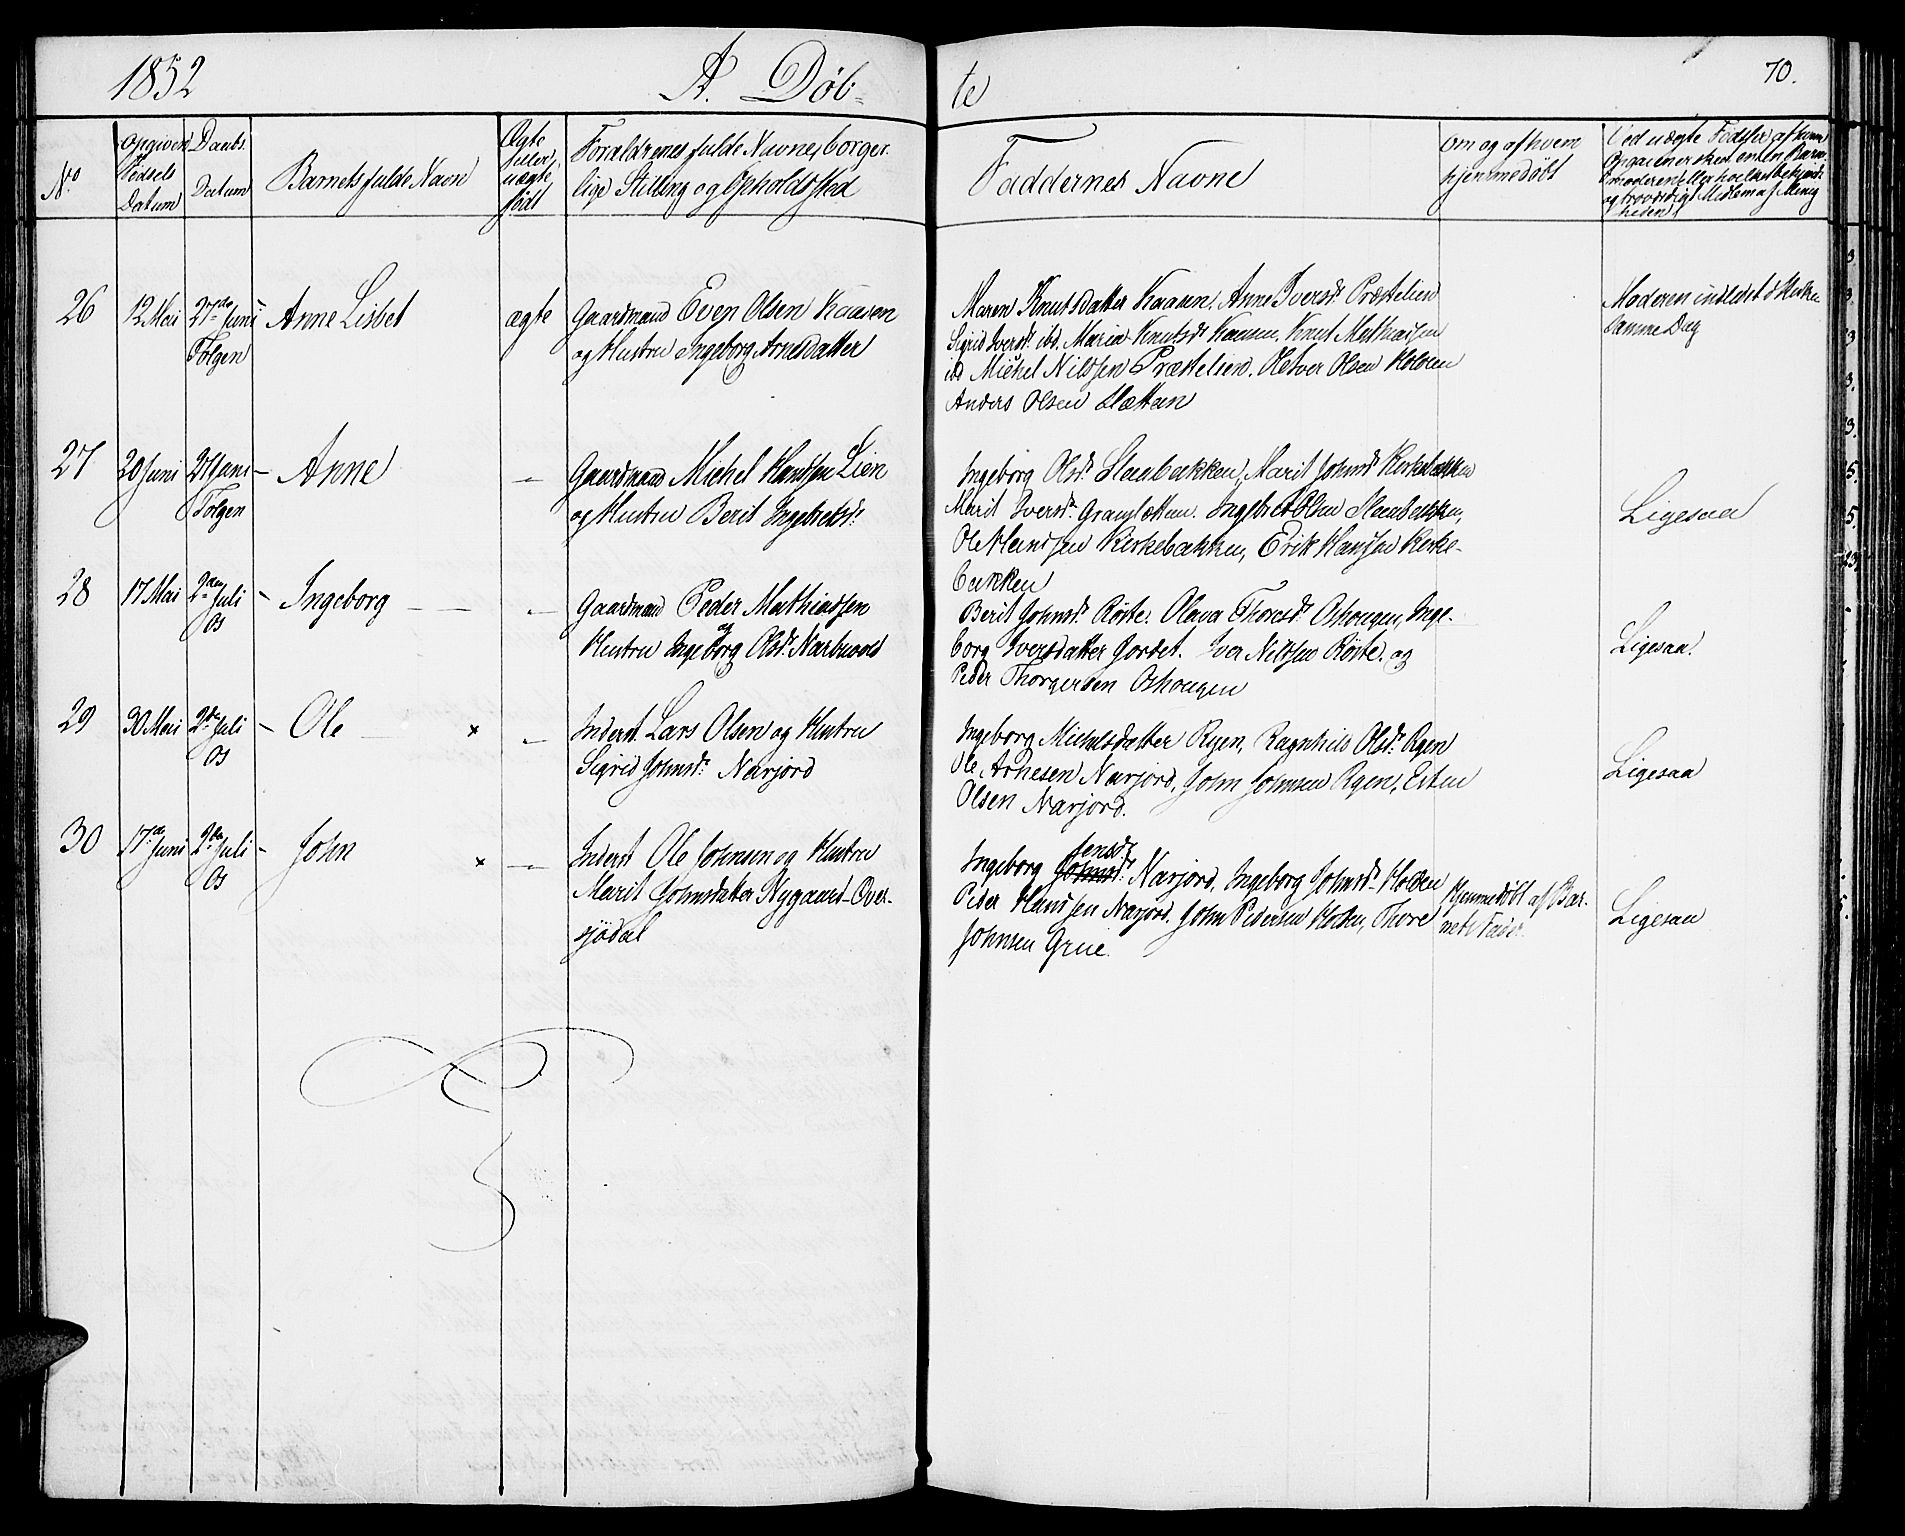 1852 A. Døb-
te 70.
No
Opgiven Fødsels Datum
Daabs Datum
Barnets fulde Navn
Ægte eller uægte født
Forældrenes fulde Navne, borger-
lige Stilling og Opholdssted
Faddernes Navne
om og af hvem
hjemmedöbt
Ved uægte Fødsler af hvem
26 12 Mai 27de Juni Tolgen Anne Lisbet ægte
Gaardmand Even Olsen Kaasen
og Hustru Ingeborg Arnesdatter
Maren Knutsdatter Kaasen. Anne Iversdr Præstelien
Sigrid Iversdr ibd. Maria Knutsdr Kaasen, Knut Mathiasen
ibd Michel Nilssen Præstelien. Oletver Olsen Holden
Anders Olsen Slætten
Moderen indledet i Kirken
samme Dag
27 20 Juni 27 Juni Tolgen - Anne
Gaardmand Michel Hansen Lien
og Hustru Berit Ingebretsdr
Ingeborg Olsdr Staubakken, Marit Johnsdr Kirkebakken
Marit Iversdr Granslætten. Ingebret Olsen Staubakken,
Ole Hansen Kirkebakken, Erik Hansen Kirke-
bakken
Ligesaa
28 17 Mai 2den Juli Os - Ingeborg
Gaardmand Peder Mathiassen
og
Hustru Ingeborg Olsdr Narbuvold
Berit Johnsdr Röste. Olava Thoresdr Oshougen, Inge-
borg Iversdatter Jordet. Iver Nilssen Röste. og
Peder Thorgersen Oshougen
Ligesaa.
29 30 Mai 2den Juli Os - Ole x
Inderst Lars Olsen og Hustru
Sigrid Johnsdr Narjord
Ingeborg Michelsdatter Ryen, Ragnhild Olsdr Ryen
Ole Arnesen Narjord, John Johnsen Ryen, Esten
Olsen Narjord.
Ligesaa
30 17de Juni 2den Juli Os - John x
Inderst Ole Johnsen og Hustru
Marit Johnsdatter Nygaard-Over-
sjødal
Jensdr
Ingeborg Johnsdr Narjord, Ingeborg Johnsdr Holden
Peder Hansen Narjord. John Pedersen Holden, Thore
Johnsen Grue.
Hjemmedöbt af Bar-
nets Fader.
Ligesaa